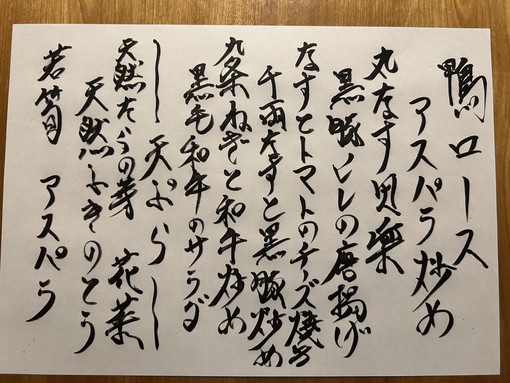 鴨ロース
アスパラ炒め
丸なす田楽
黒豚ヒレの唐揚げ
なすとトマトのチーズ焼き
千両なすと黒豚炒め
九条ねぎと和牛炒め
黒毛和牛のサラダ
〜〜天ぷら〜〜
天然たらの芽 花菜
天然ふきのとう
若筍 アスパラ